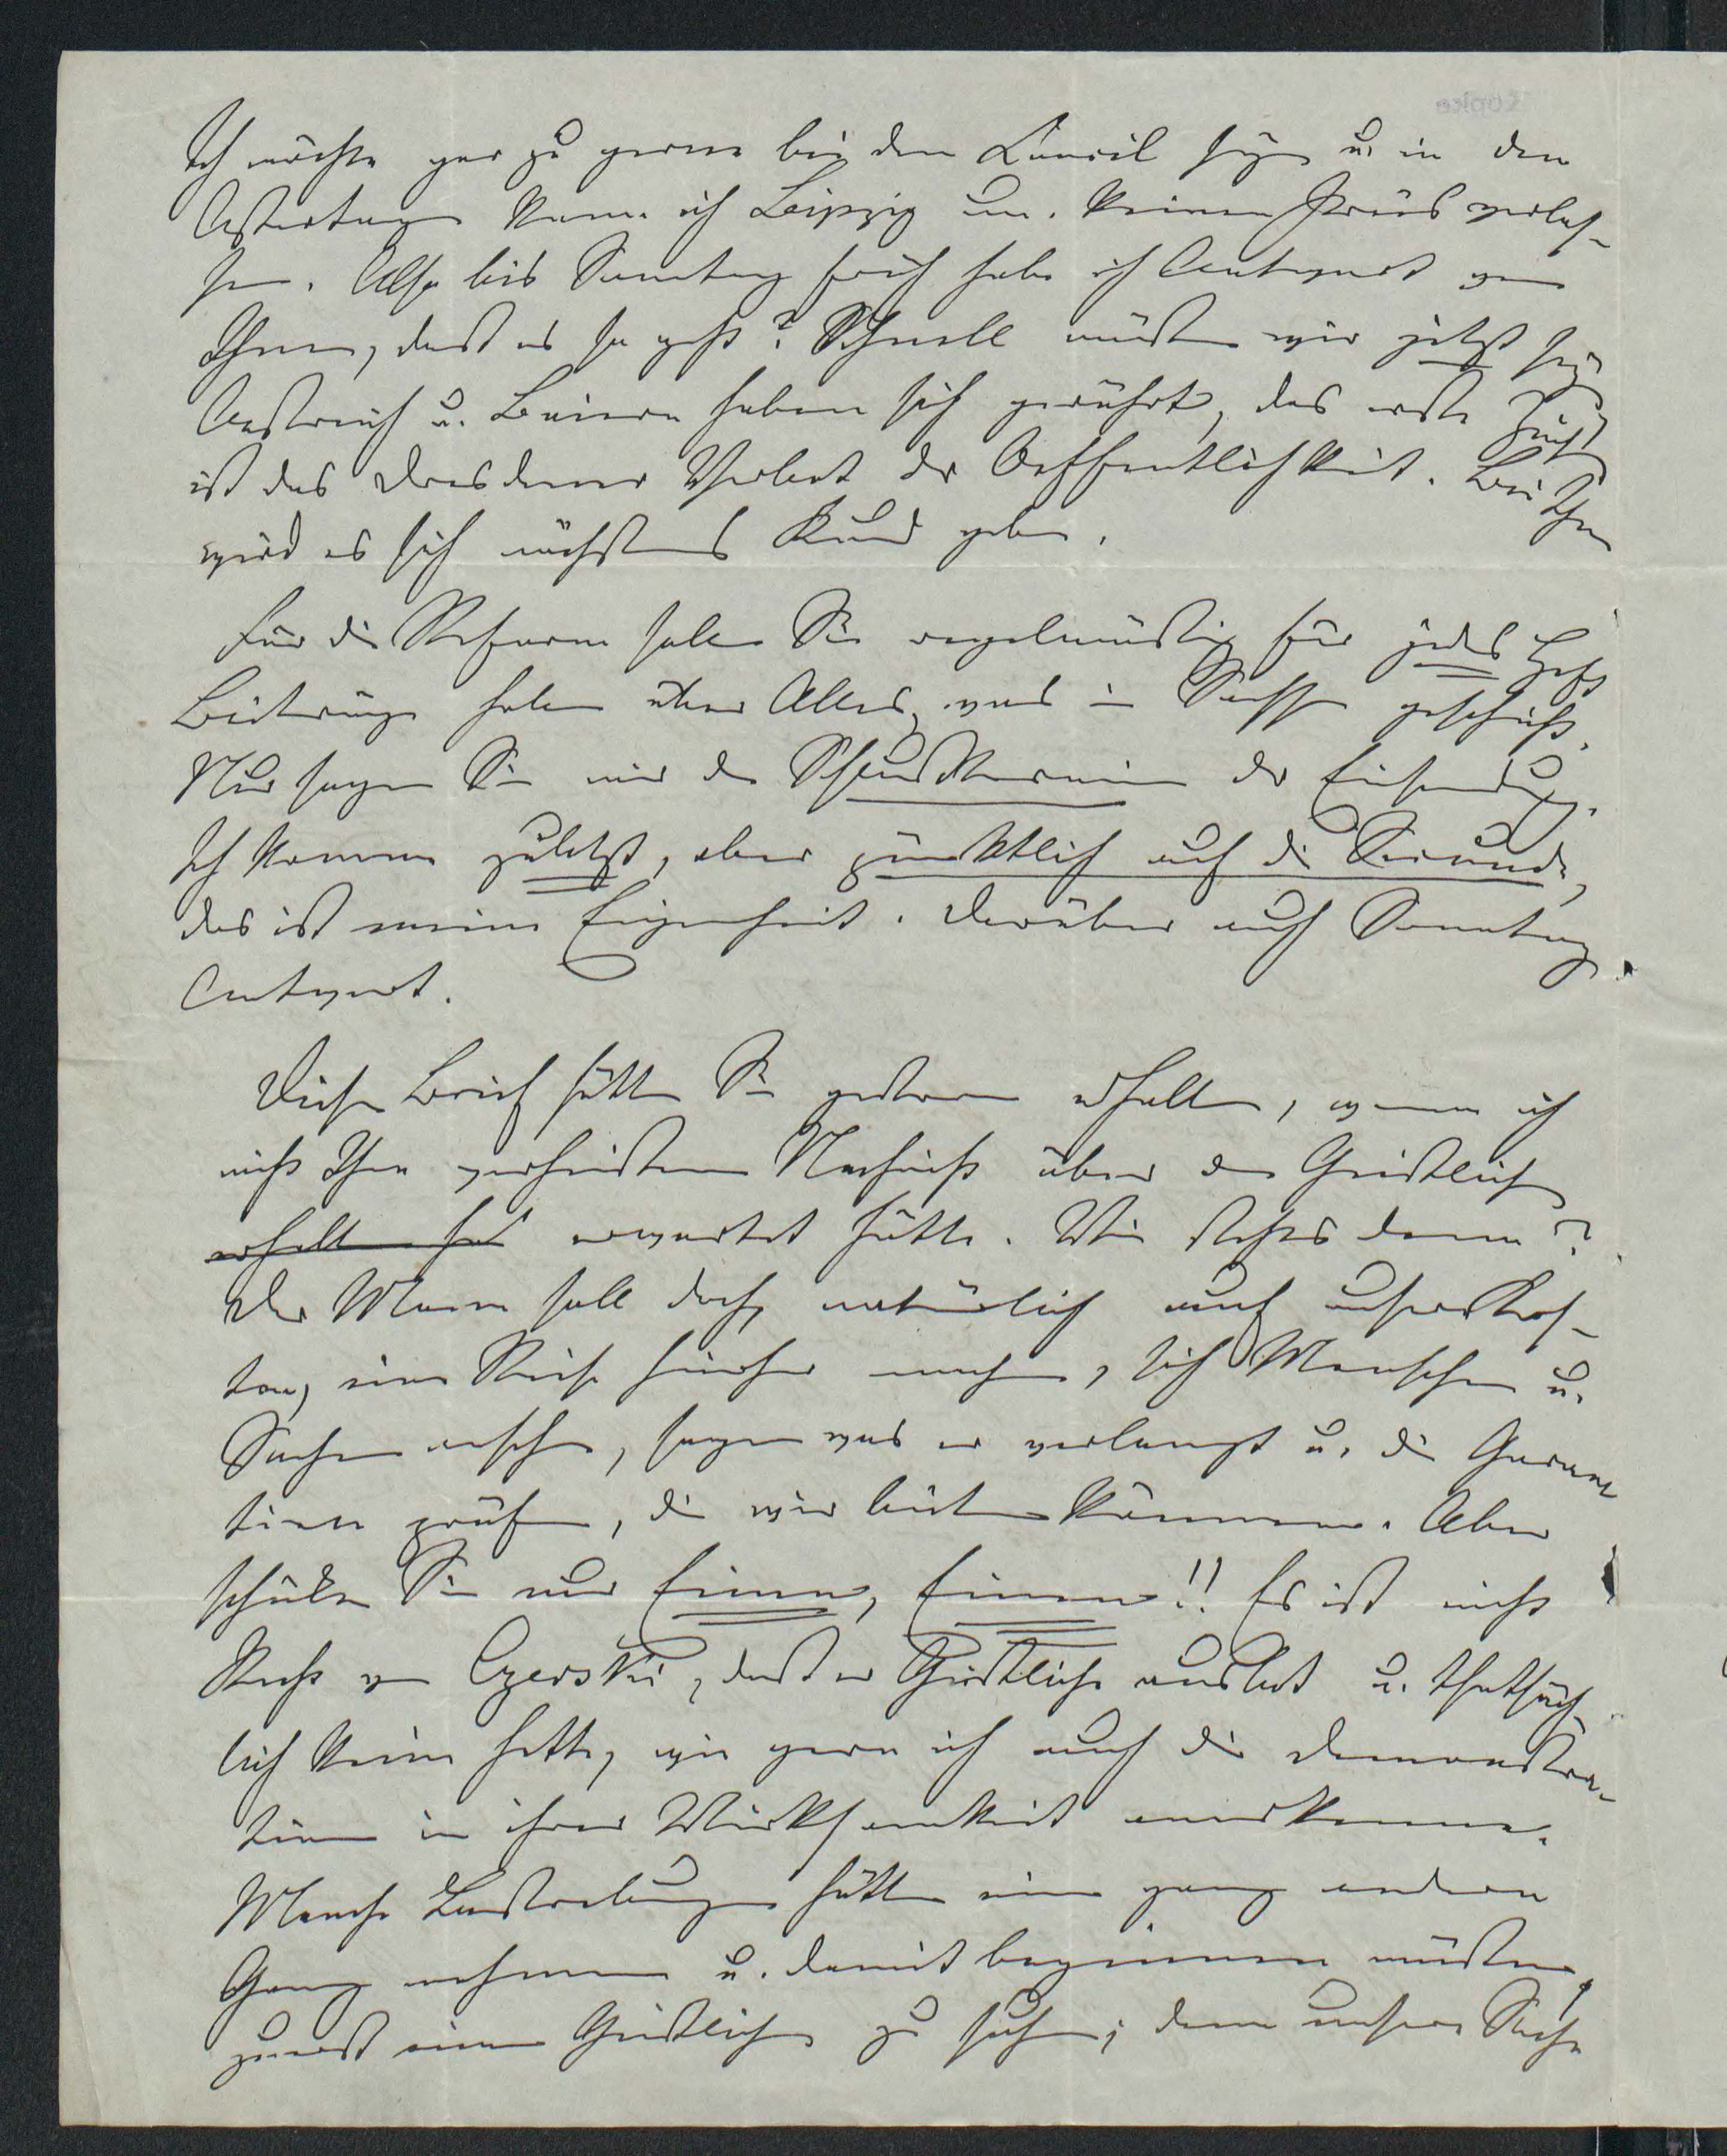 Ich möchte gar zu gerne bei dem Concil sein u. in den
Ostertagen kann ich Leipzig um keinen Preis verlas-
sen. Also bis Sonntag früh habe ich Antwort von
Ihnen, daß es so geht? Schnell müssen wir jetzt sein
Oestreich u. Baiern haben sich gerührt, das erste
ist das Dresdener Verbot der Oeffentlichkeit. Bei Ihnen
wird es sich nächstens Kund geben.
Für die Reform sollen Sie regelmäßig für jedes Heft
Beiträge haben über Alles, was in Sachsen geschieht.
Nur sagen Sie mir den Schlußtermin der Einsendung.
Ich komme zuletzt, aber pünktlich auf die Secunde,
das ist meine Eigenheit. Darüber auch Sonntag
Antwort.
Diesen Brief hätten Sie gestern erhalten, wenn ich
nicht Ihre verheißene Nachricht über den Geistlichen
erhalten hät erwartet hätte. Wie stehts denn?
Der Mann soll doch, natürlich auf unsere Kos-
ten, eine Reise hierher machen, sich Menschen u.
Sachen ansehen, sagen was er verlangt u. die Garan
tieen prüfen, die wir bieten können. Aber
schicken Sie nur Einen, Einen!! Es ist nicht
Recht von Czerski, daß er Geistliche ausbot u. thatsäch-
lich keine hatte, wie gern ich auch die Demonstra-
tion in ihrer Wirksamkeit anerkenne.
Manche Bestrebungen hätten einen ganz andern
Gang nehmen u. damit beginnen müssen,
zuerst einen Geistlichen zu suchen; denn unsere Sache